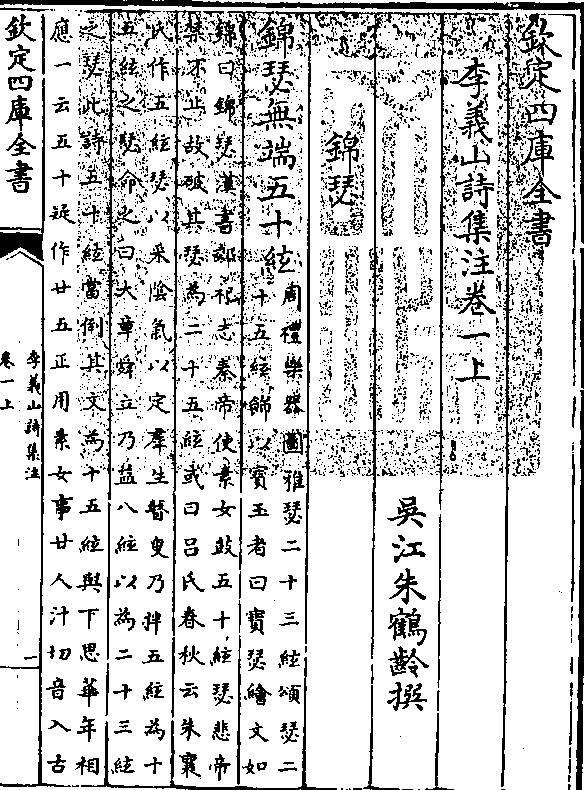 欽定四庫全書
李義山詩集注卷一上
吳江朱鶴齡撰
錦瑟
錦瑟無端五十絃
周禮樂器圖雅瑟二十三絃頌瑟二
十五絃飾以寶玉者曰寶瑟繪文如
錦曰錦瑟漢書郊祀志泰帝使素女鼓五十絃瑟悲帝
禁不止故破其瑟為二十五絃或曰吕氏春秋云朱襄
氏作五絃瑟以采陰氣以定羣生瞽叟乃拌五絃為十
五絃之瑟命之曰大章舜立乃益八絃以為二十三絃
之瑟此詩五十絃當倒其文為十五絃與下思華年相
應一云五十疑作廿五正用素女事廿人汁切音入古
欽定四庫全書
李義山詩集注
卷一上
一